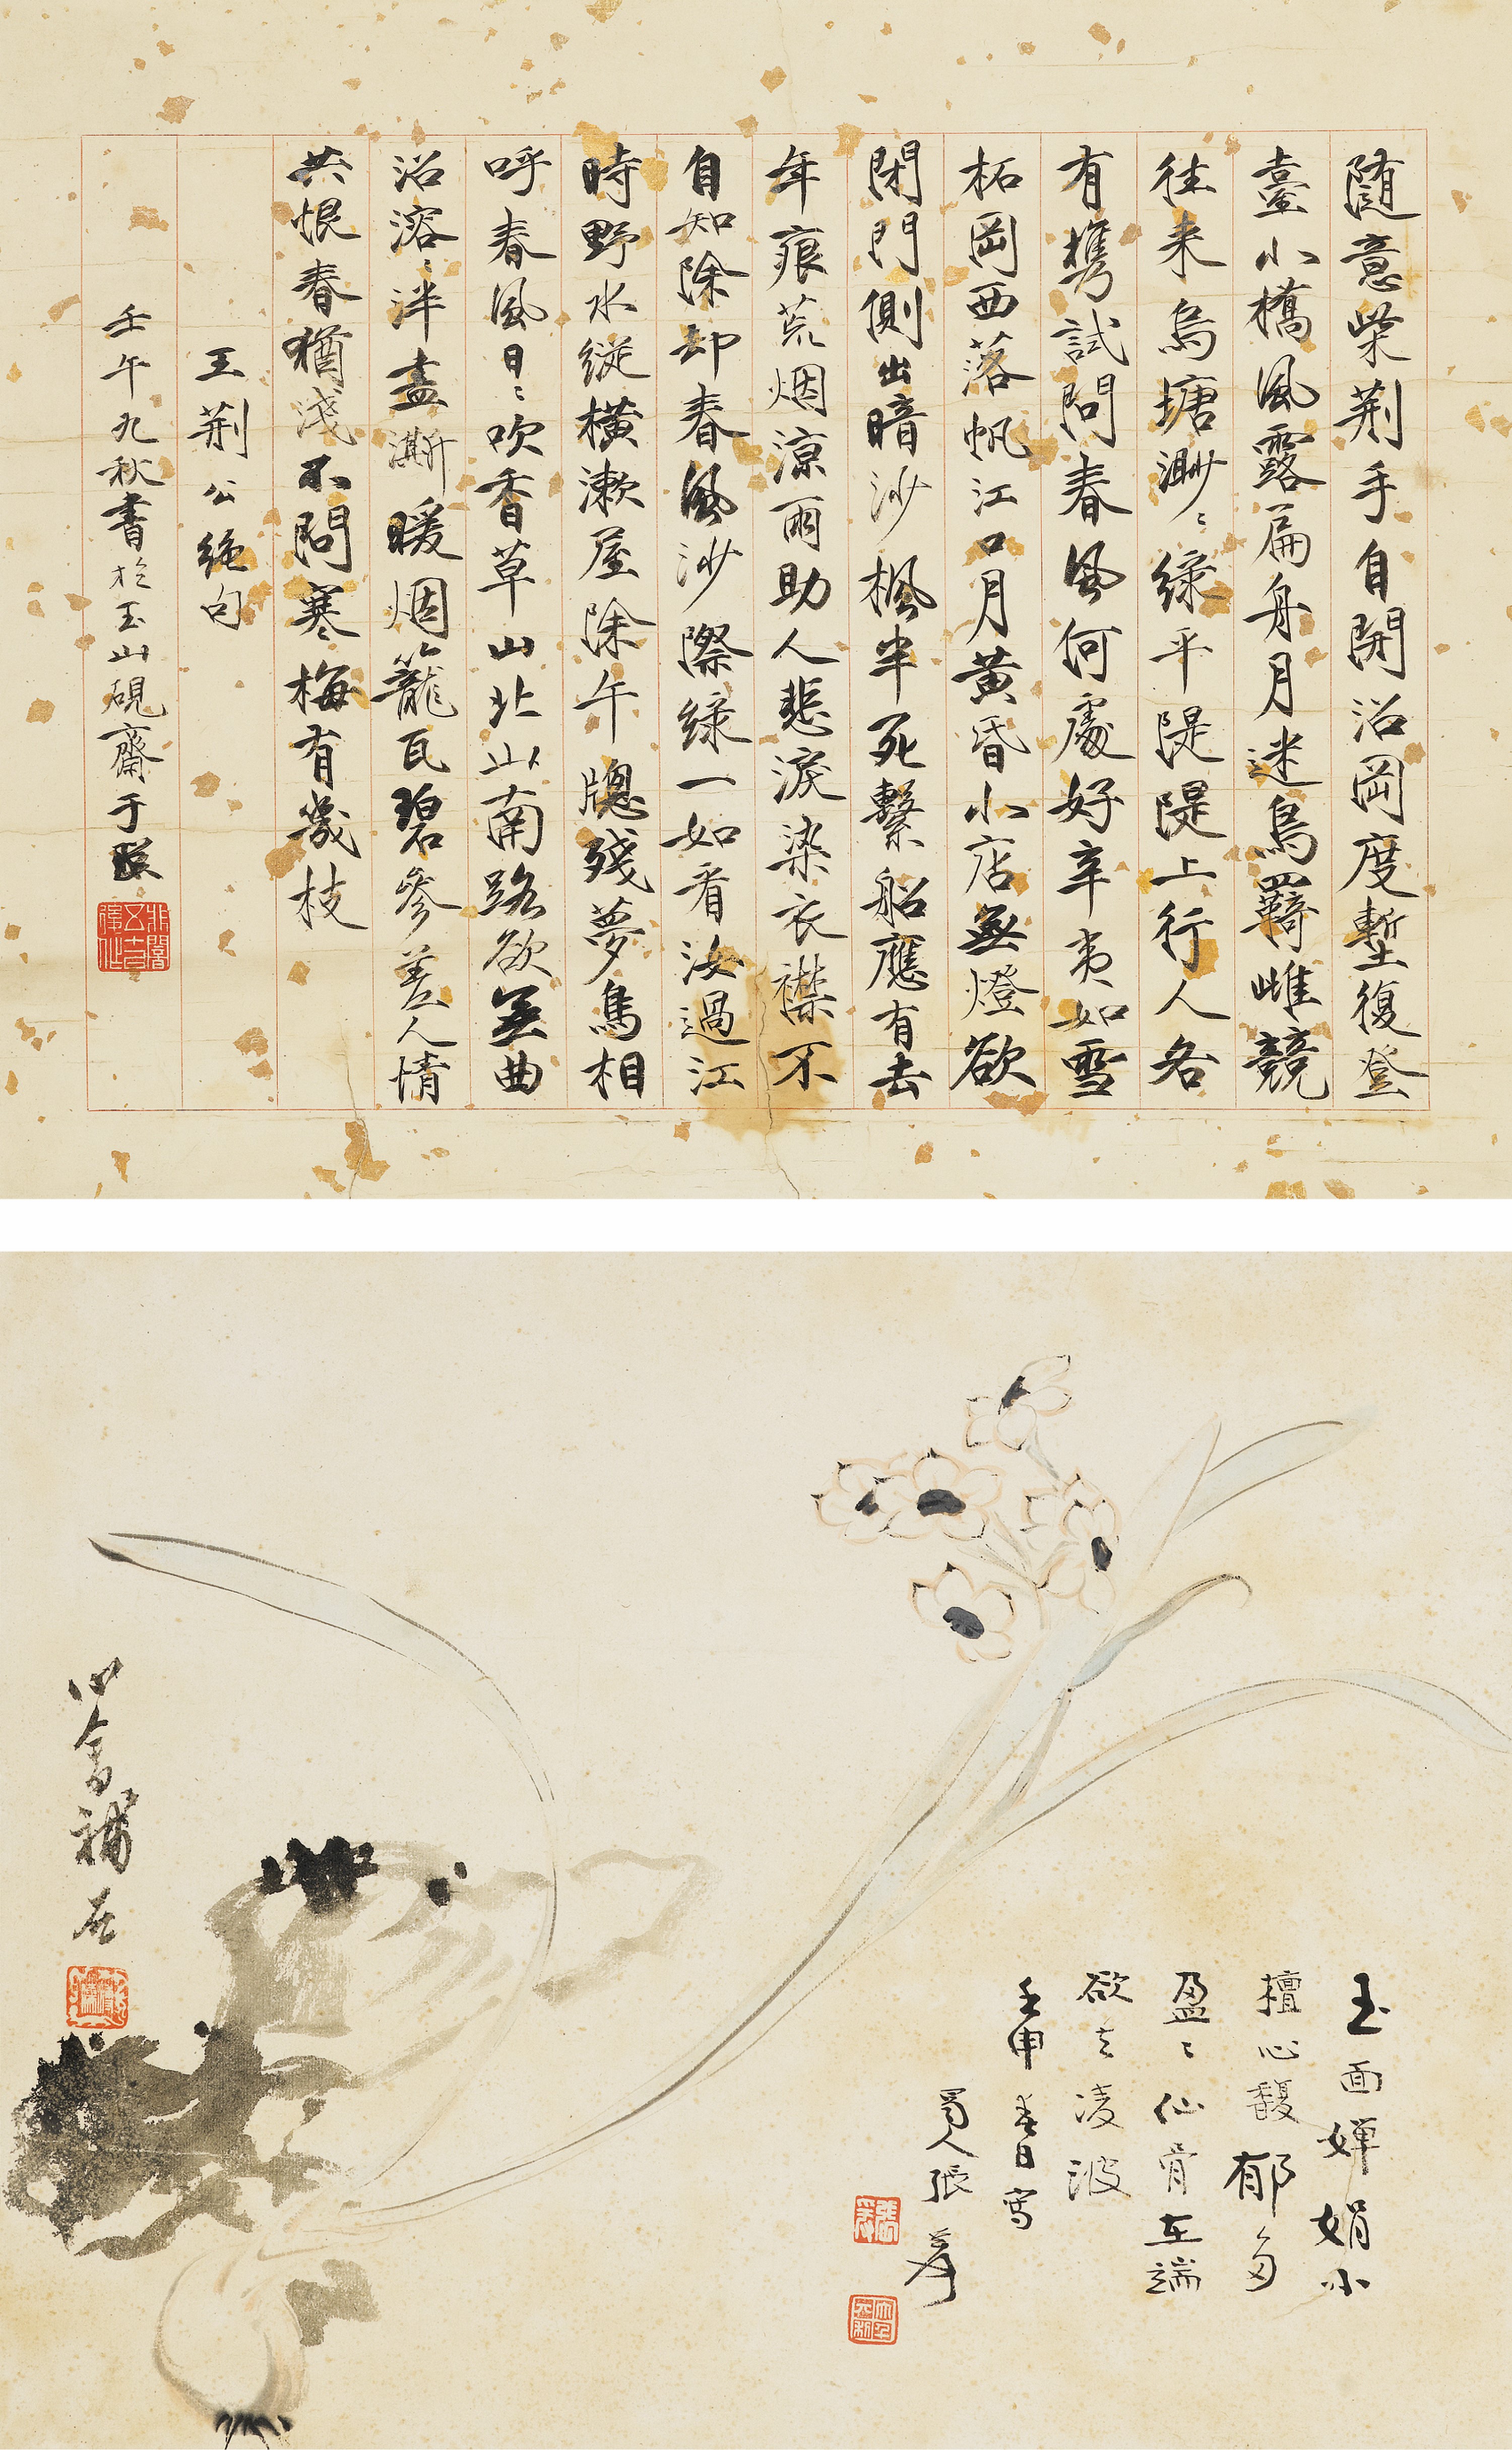 隨意柴荆手自開沿岡度塹復登
臺小橋風露扁舟月迷鳥羈雌競
往来烏塘渺〻緑平隄隄上行人各
有攜試問春風何處好辛夷如雪
柘岡西落帆江口月黄昏小店無燈欲
閉門側出暗沙楓半死繫船應有去
年痕荒烟涼雨助人悲淚染衣襟不
自知除却春風沙際緑一如看汝過江
時野水縱横漱屋除午牕殘夢鳥相
呼春風日〻吹香草山北山南路欲無曲
沼溶〻泮盡澌暖烟籠瓦碧參差人情
共恨春猶淺不問寒梅有幾枝
王荆公絶句
壬午九秋書於玉山硯齋于
玉面嬋娟小
檀心馥郁多
盈〻仙骨在端
欲去凌波
壬申春日寫
蜀人張爰
心畬補石